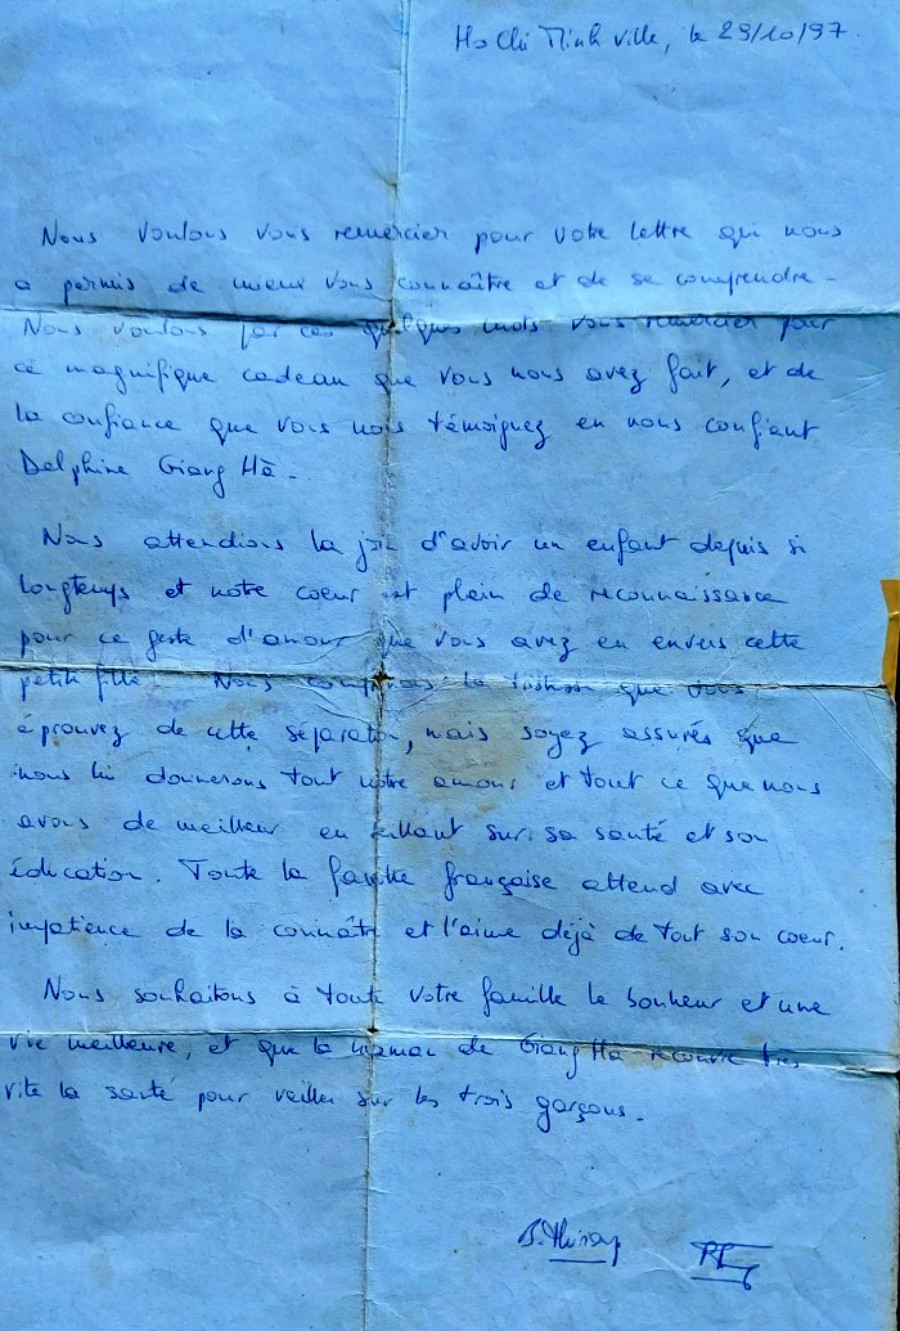 Ho Chi Minh ville, le 29/10/97.
Nous voulons vous remercier pour votre lettre qui nous
a permis de mieux vous connaître et de se comprendre -
Nous voulons par ces quelques mots vous remercier pour
ce magnifique cadeau que vous nous avez fait, et de
la confiance que vous nous témoignez en nous confiant
Delphine Giang Hà -
Nous attendions la joie d'avoir un enfant depuis si
longtemps et notre coeur est plein de reconnaissance
pour ce geste d'amour que vous avez eu envers cette
petite fille - Nous comprenons la tristesse que vous
éprouvez de cette séparation, mais soyez assurés que
nous lui donnerons tout notre amour et tout ce que nous
avons de meilleur en veillant sur sa santé et son
éducation. Toute la famille française attend avec
impatience de la connaître et l'aime déjà de tout son coeur.
Nous souhaitons à toute votre famille le bonheur et une
vie meilleure, et que la maman de Giang Hà recouvre très
vite la santé pour veiller sur les trois garçons -